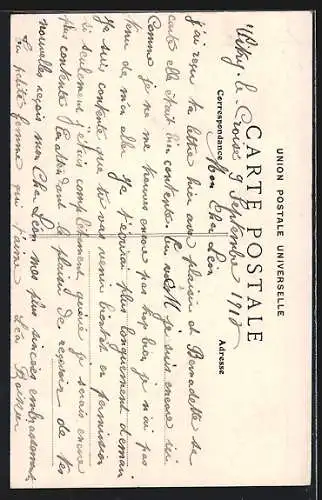 UNION POSTALE UNIVERSELLE
CARTE POSTALE
Correspondance
Adresse
Vitry-la- 9 Septembre 1918
Mon Cher Léon
J'ai reçu ta lettre hier avec plaisir et Bernadette sa
carte elle était bien contente. je suis encore ici
Comme je ne me trouve encore pas trop bien je n'ai pas
envie de m'en aller plus longuement demain
Je suis contente que tu vas venir bientôt en permission
si seulement j'étais complètement guérie je serais encore
plus contente En attendant le plaisir de recevoir de tes
nouvelles reçois mon Cher Léon mes plus sincères embrassements
Ta petite femme qui t'aime Léa